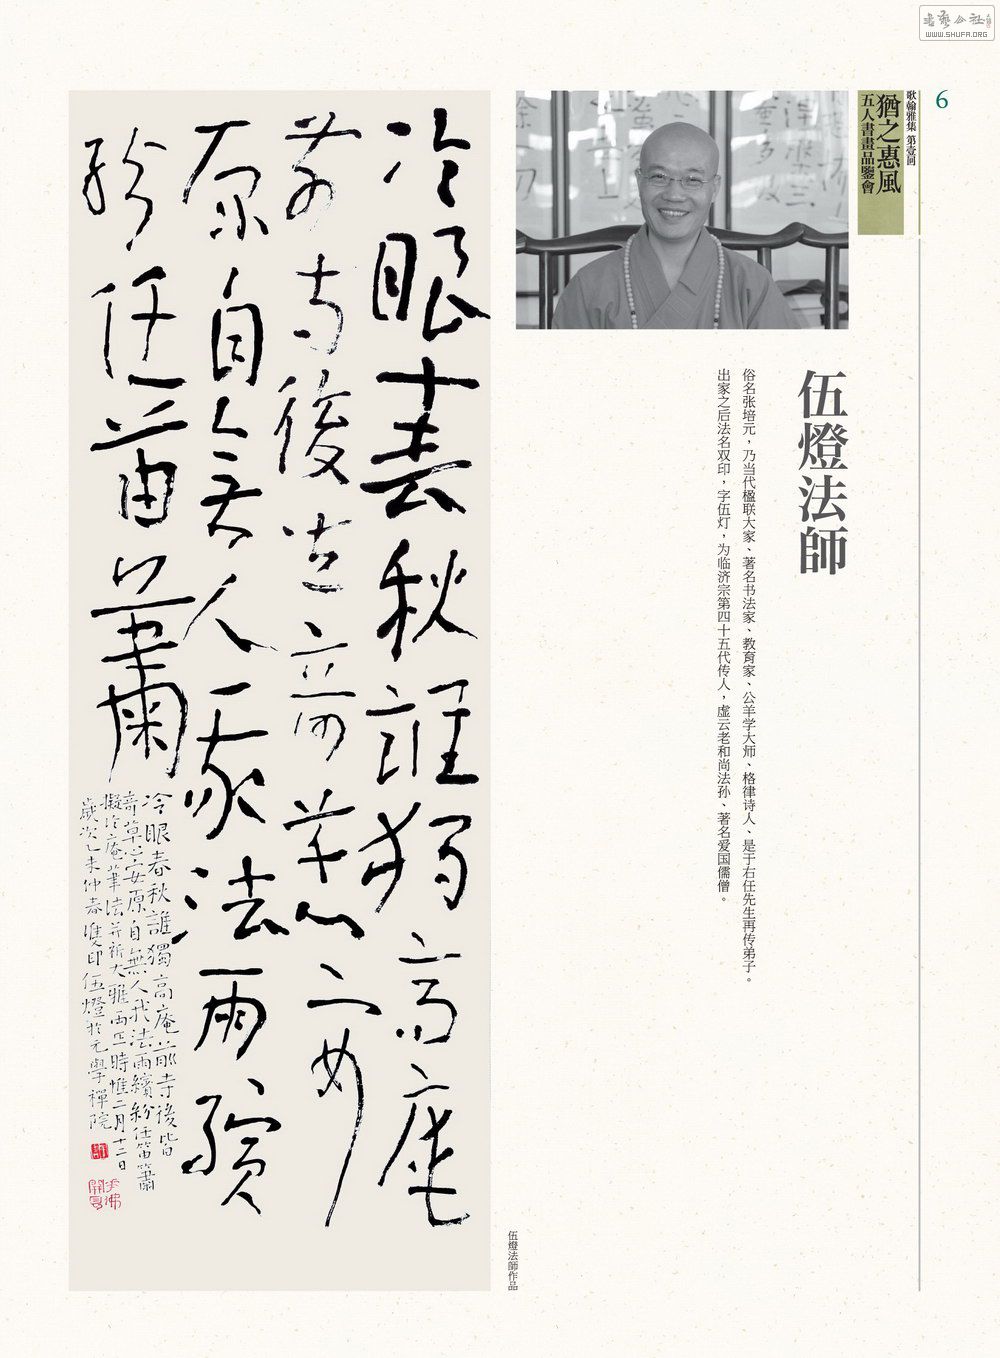 書藝公社
WWW.SHUFA.ORG
6
歌翰雅集 第壹回
猶之惠風
五人書畫品鑒會
伍燈法師
俗名张培元，乃当代楹联大家、著名书法家、教育家、公羊学大师、格律诗人、是于右任先生再传弟子。
出家之后法名双印，字伍灯，为临济宗第四十五代传人，虚云老和尚法孙、著名爱国儒僧。
冷眼春秋誰獨高庵
前寺後皆奇草芷安
原自無人我法雨繽
紛任笛簫
冷眼春秋誰獨高庵前寺後皆
奇草芷安原自無人我法雨繽紛任笛簫
擬冷庵筆法并祈大雅兩正時惟二月十二日
歲次乙未仲春雙印伍燈於元學禪院
伍燈法師作品